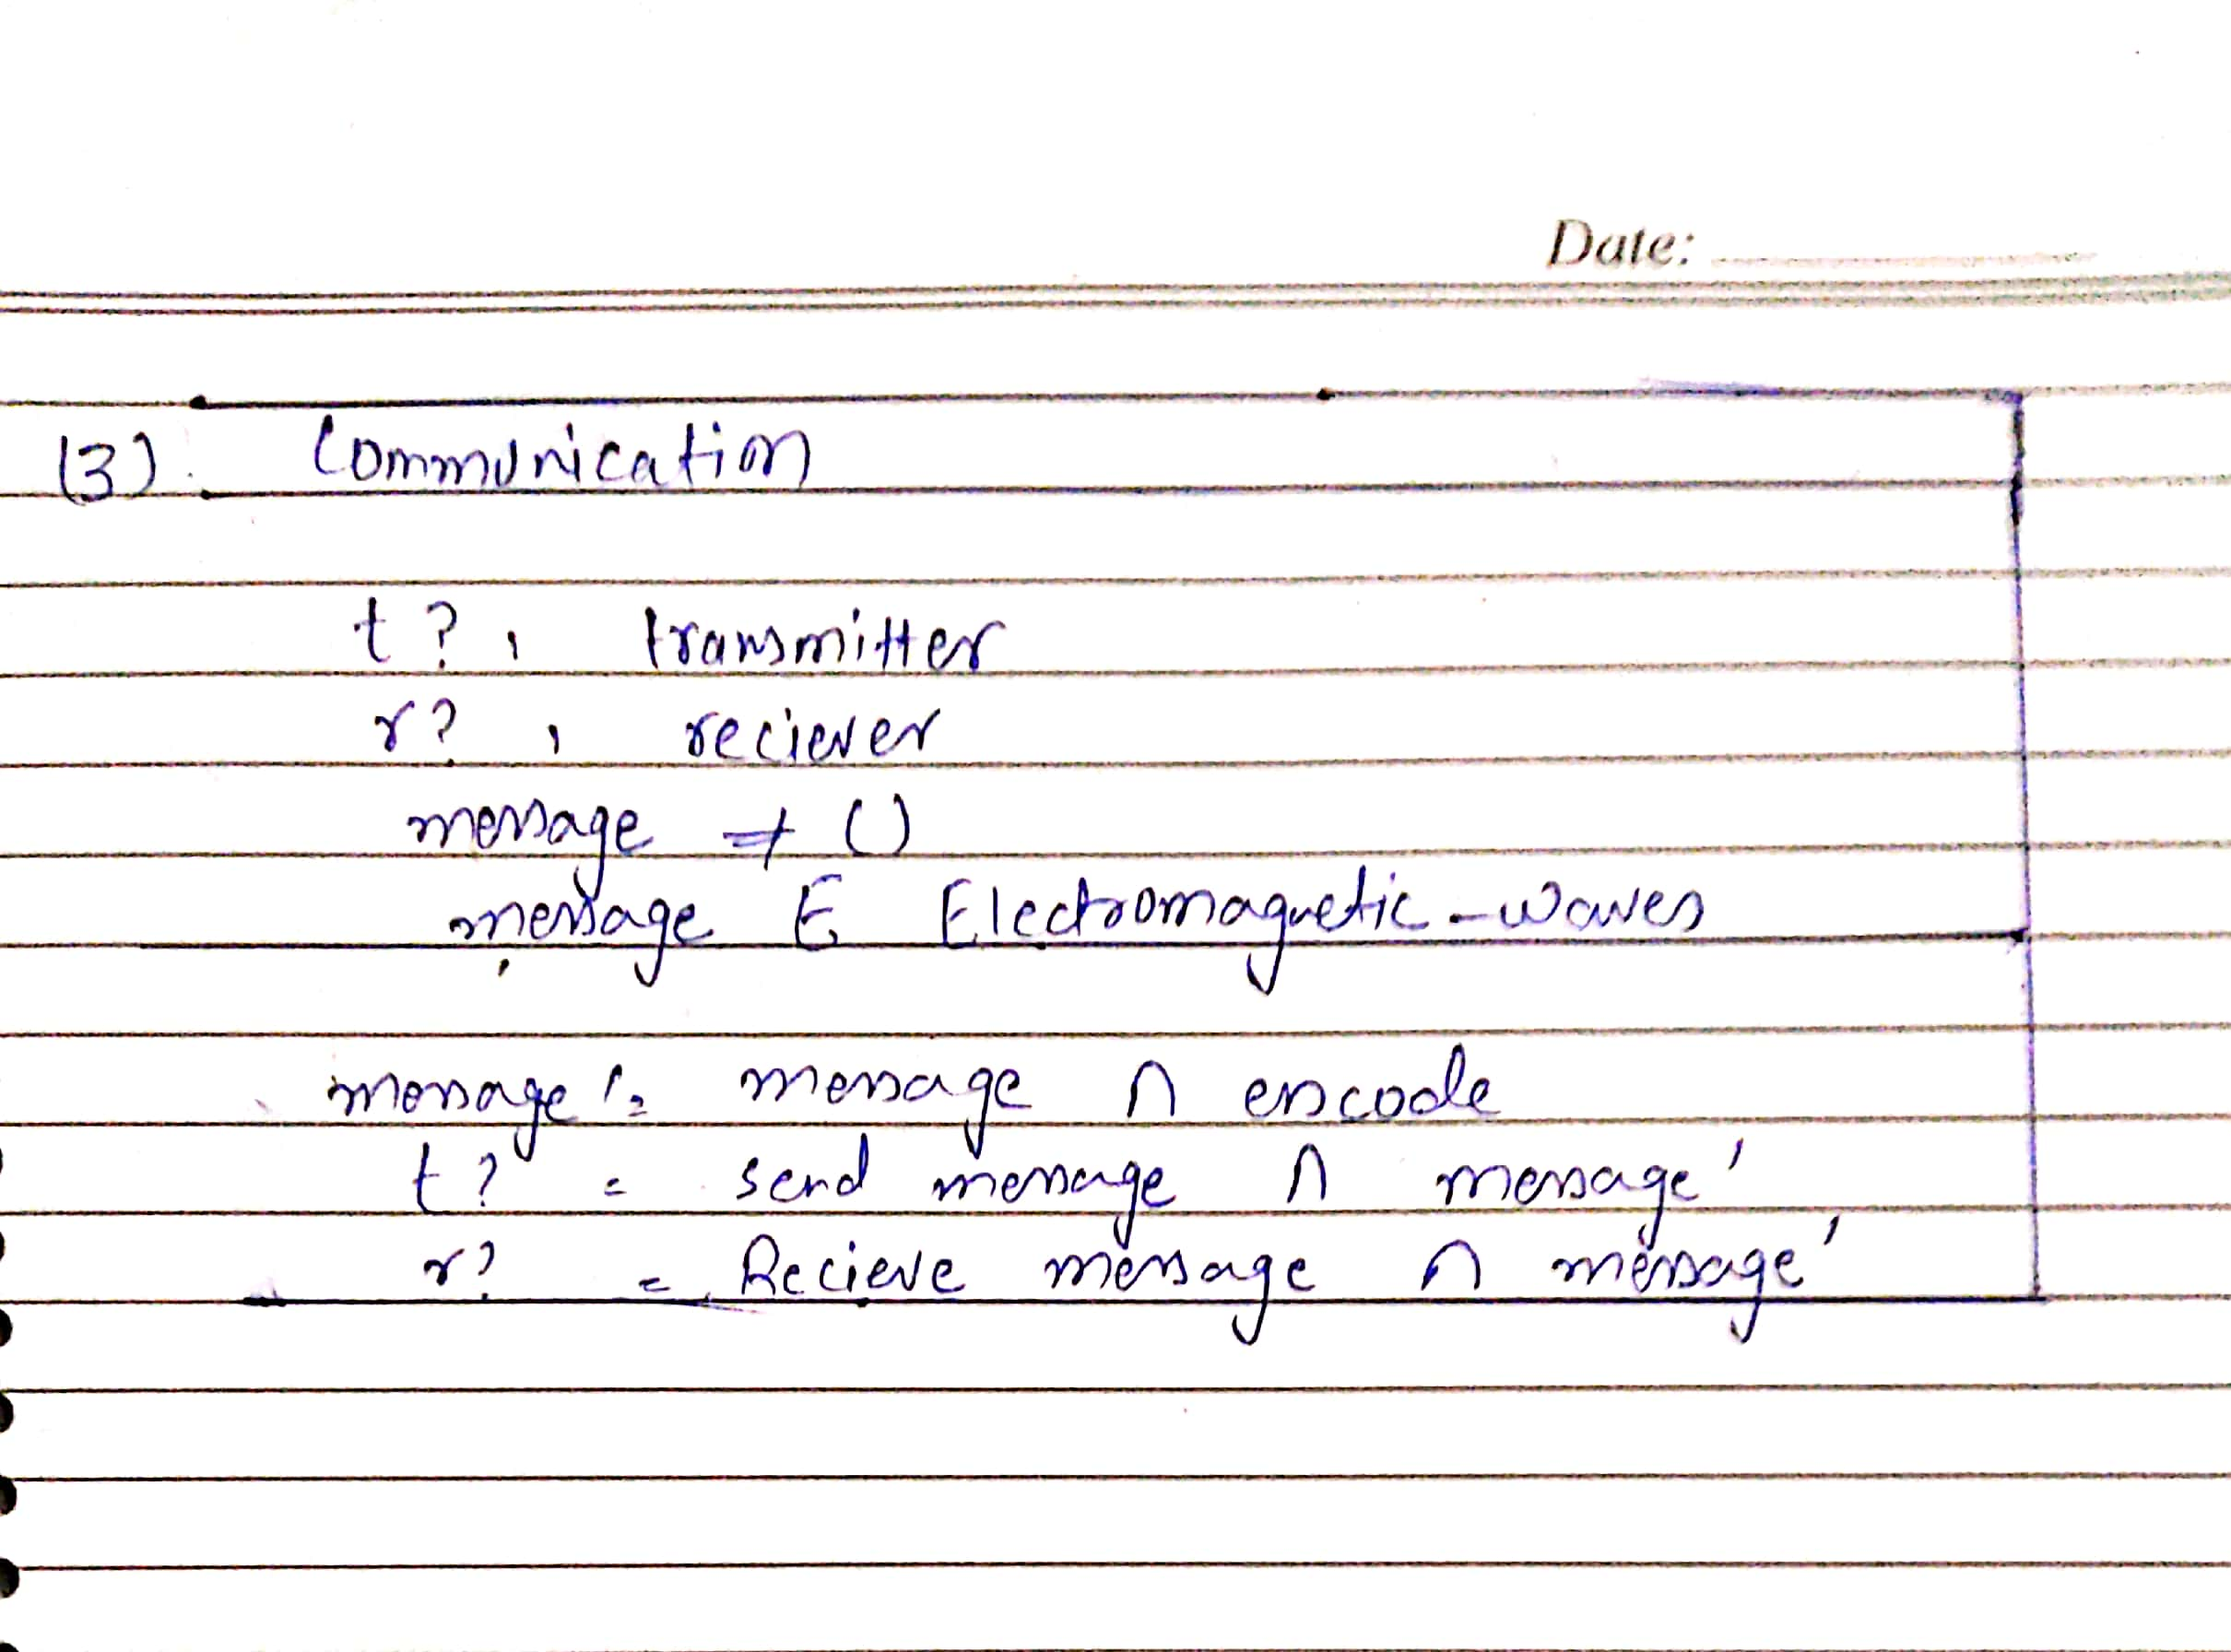 Date:
(3). Communication
t? , transmitter
r? , reciever
message ≠ ()
message ∈ Electromagnetic-waves
message' = message ∩ encode
t? = send message ∩ message'
r? = Recieve message ∩ message'